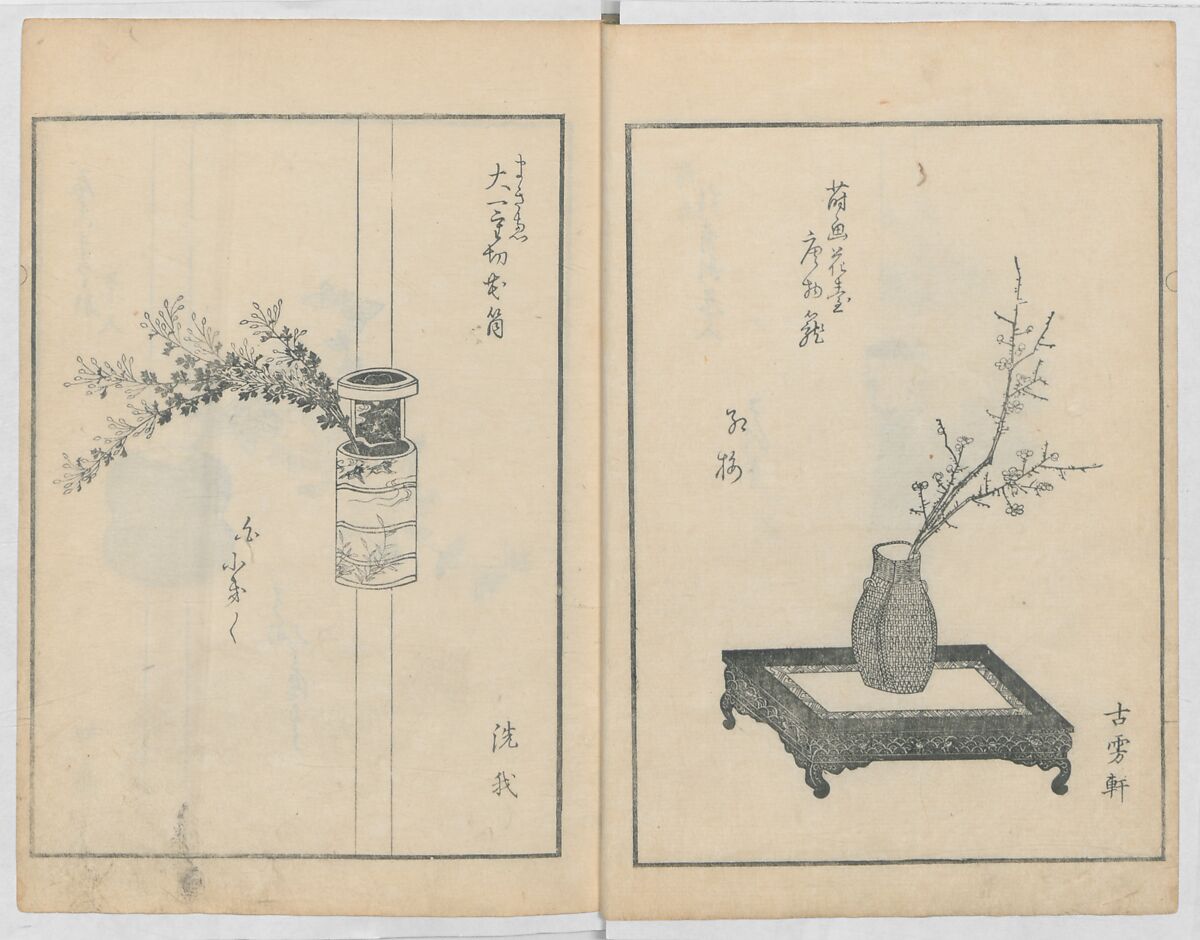 蒔画花臺
唐物籠
紅梅
古雰軒
まきゑ
大一重切花筒
白小菊
洗我